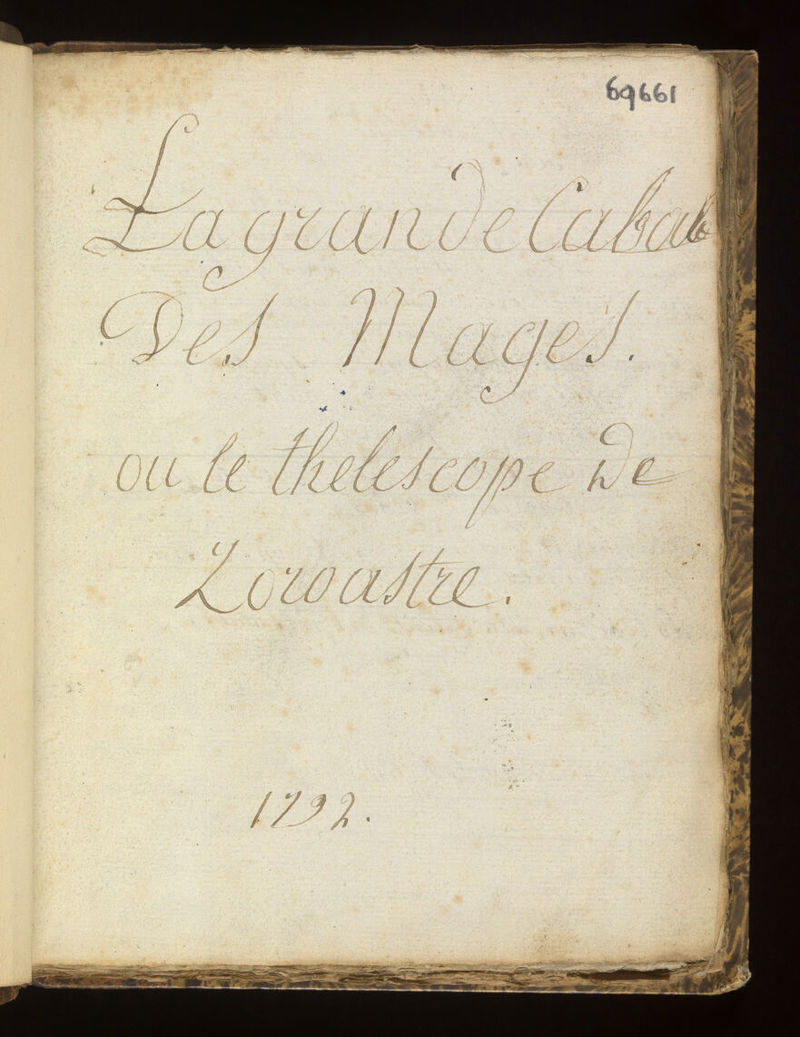 69661
La grande Cabale
Des Mages.
ou le thelescope de
Zoroastre.
1792.